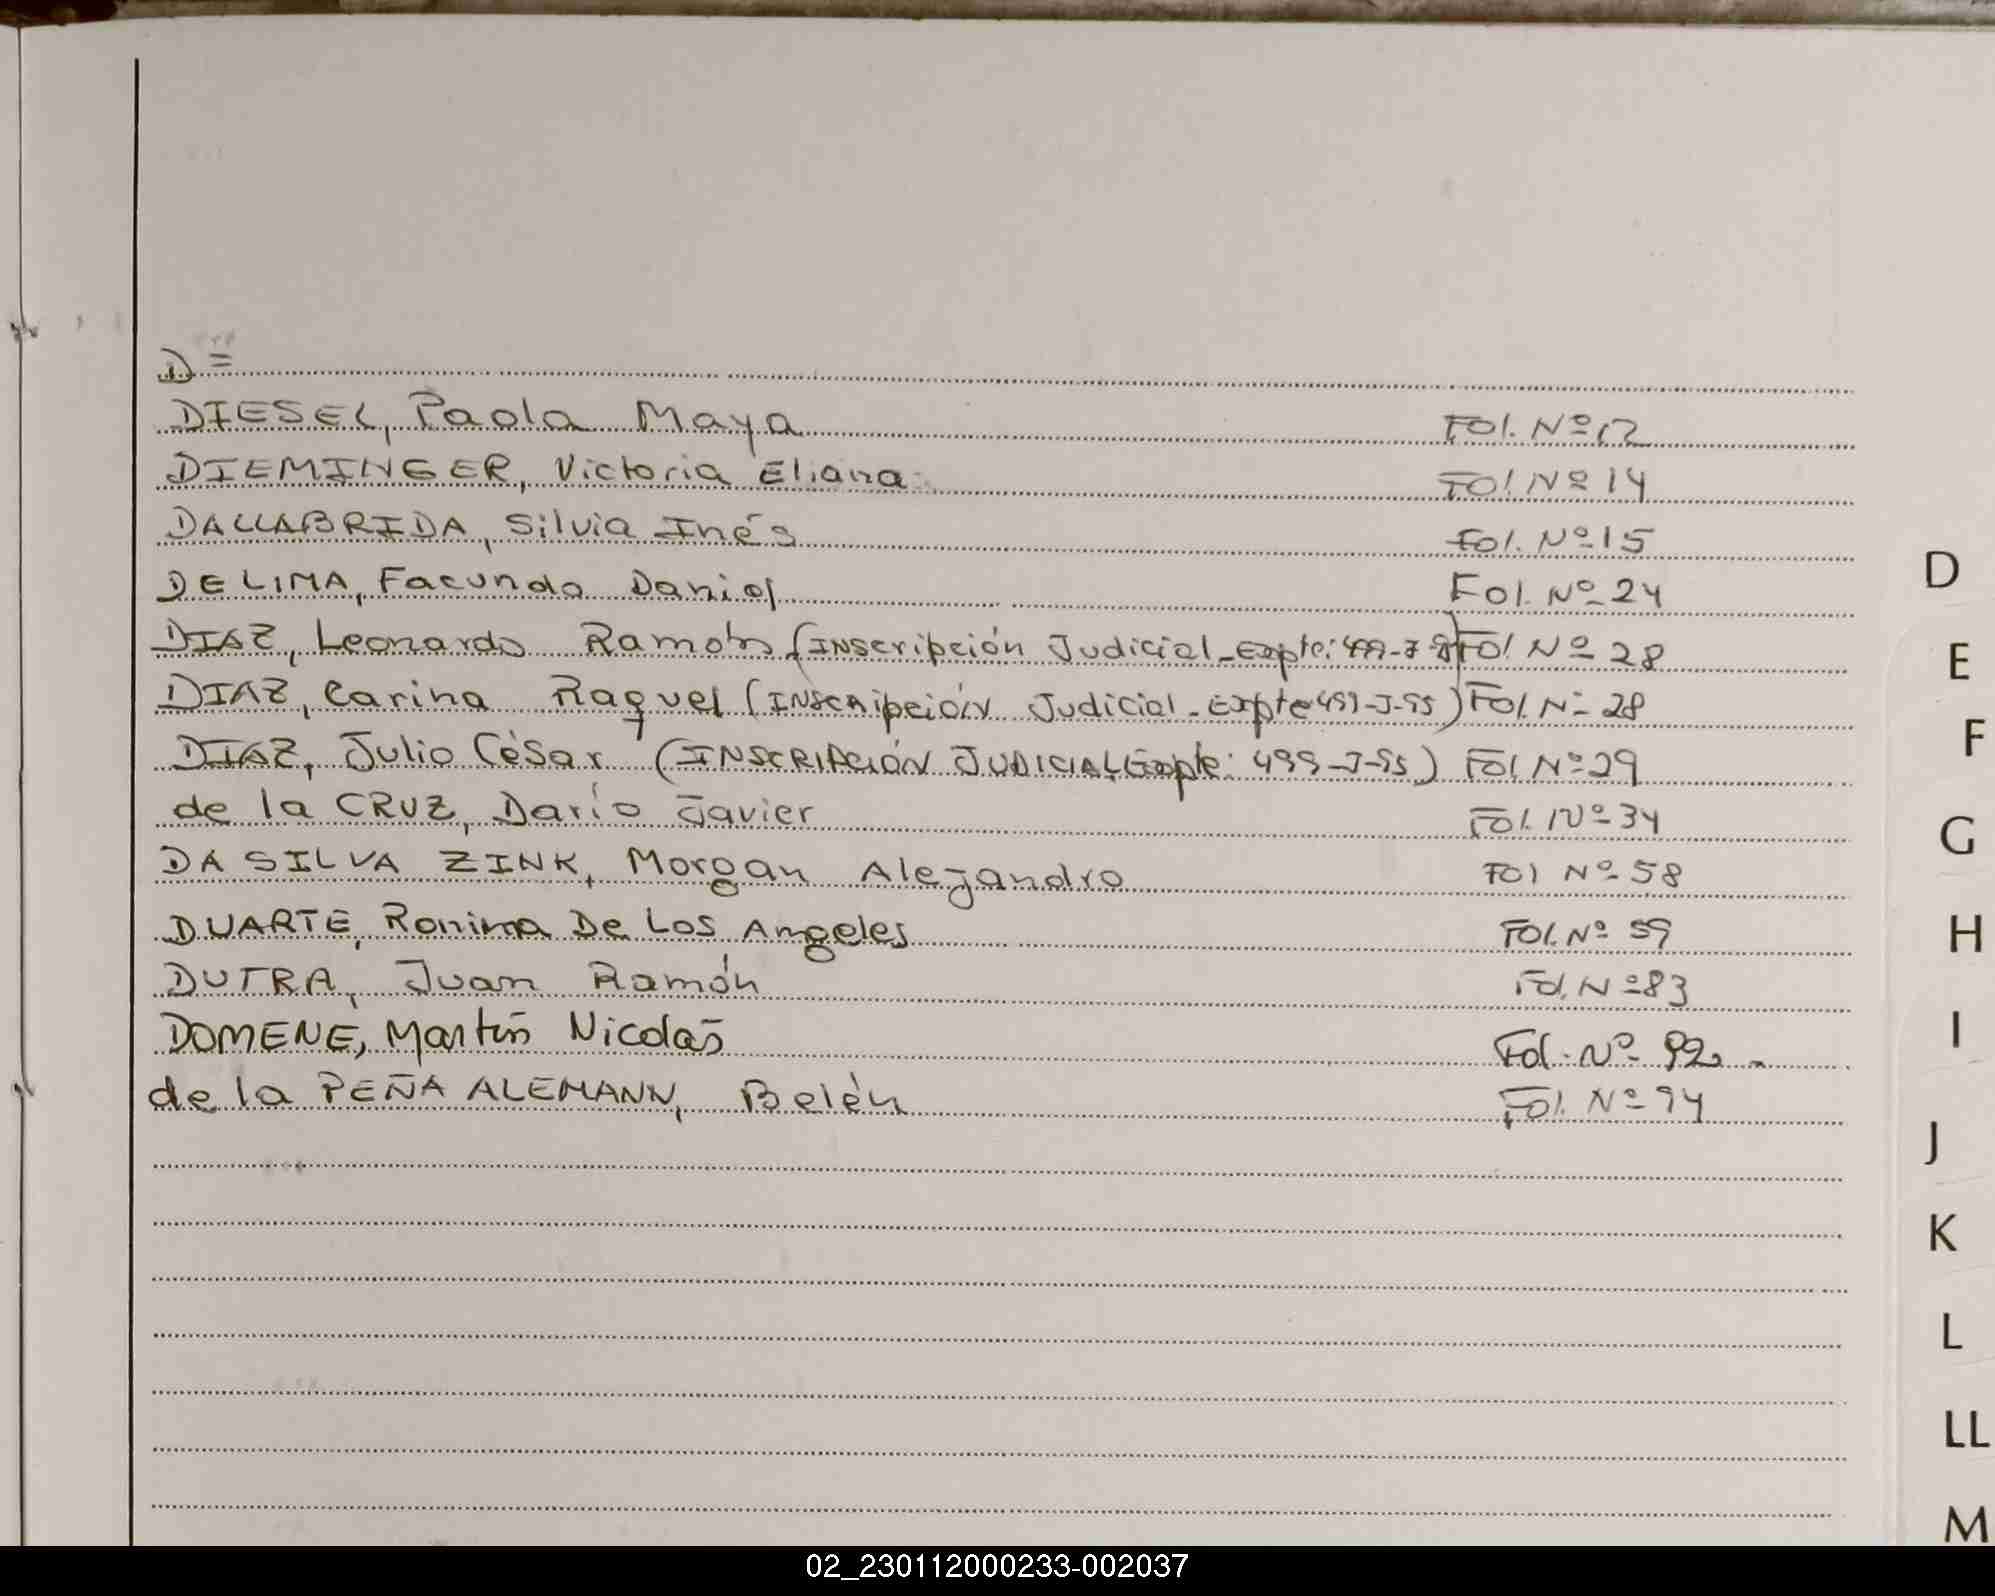 D=
DIESEL, Paola Maya Fol. Nº 12
DIEMINGER, Victoria Eliana Fol Nº 14
DALLABRIDA, Silvia Inés Fol. Nº 15
DE LIMA, Facundo Daniel Fol. Nº 24
DIAZ, Leonardo Ramón (Inscripción Judicial - Expte: 499-J- Fol. Nº 28
DIAZ, Carina Raquel (INSCRIPCIÓN Judicial - Expte 499-J-95) Fol. Nº 28
DIAZ, Julio César (INSCRIPCIÓN JUDICIAL, Expte: 499-J-95) Fol. Nº 29
de la CRUZ, Darío Javier Fol. Nº 34
DA SILVA ZINK, Morgan Alejandro Fol Nº 58
DUARTE, Romina De Los Angeles Fol. Nº 59
DUTRA, Juan Ramón Fol. Nº 83
DOMENE, Martín Nicolás Fol. Nº 92.-
de la PEÑA ALEMANN, Belén Fol. Nº 94
D
E
F
G
H
I
J
K
L
LL
M
02_230112000233-002037